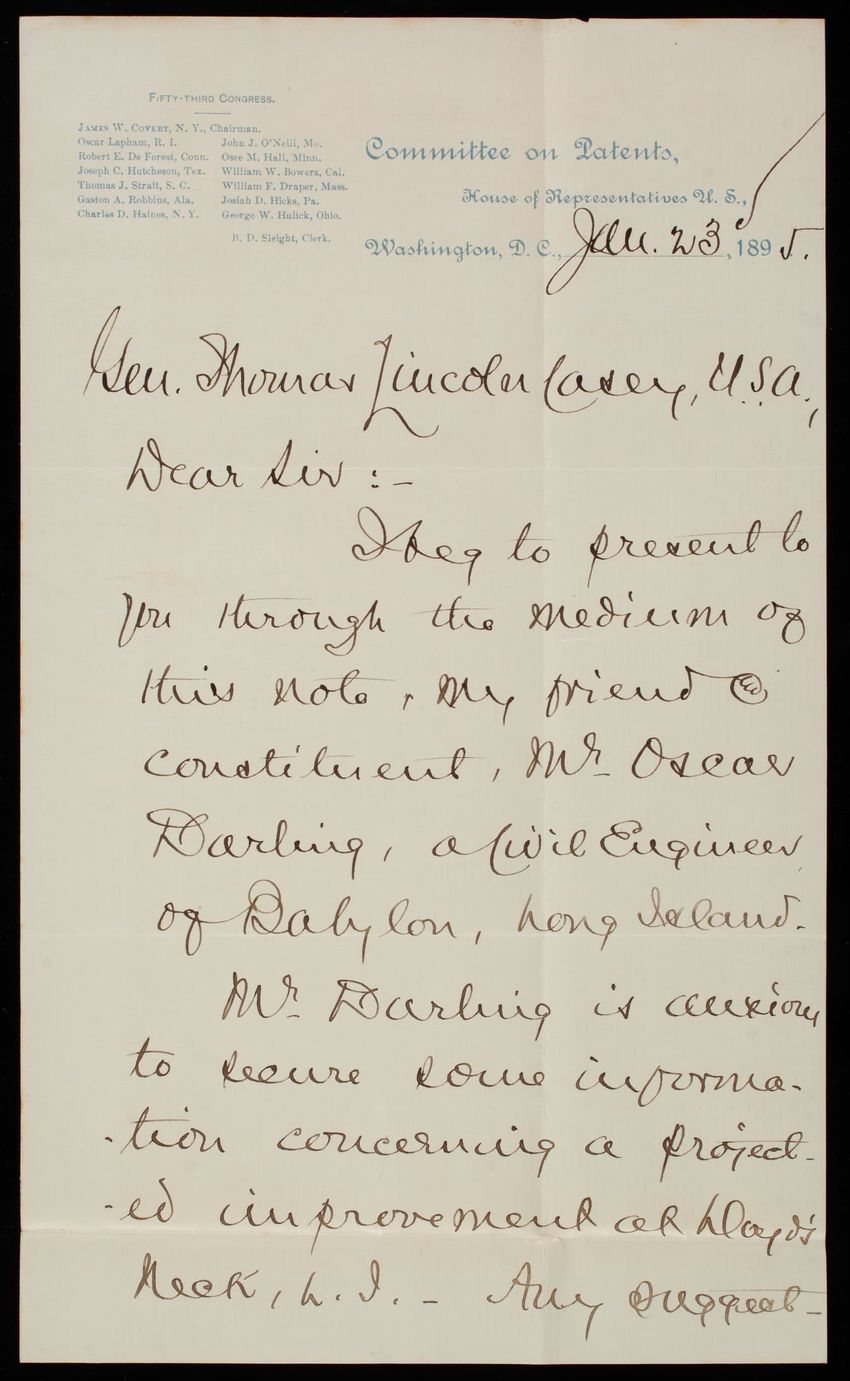 FIFTY-THIRD CONGRESS.
JAMES W. COVERT, N. Y., Chairman.
Oscar Lapham, R. I.
Robert E. De Forest, Conn.
Joseph C. Hutcheson, Tex.
Thomas J. Strait, S. C.
Gaston A. Robbins, Ala.
Charles D. Haines, N. Y.
John J. O'Neill, Mo.
Osee M. Hall, Minn.
William W. Bowers, Cal.
William F. Draper, Mass.
Josiah D. Hicks, Pa.
George W. Hulick, Ohio.
B. D. Sleight, Clerk.
Committee on Patents,
House of Representatives U. S.,
Washington, D. C., Jan. 23d, 1895.
Gen. Thomas Lincoln Casey, U.S.A.,
Dear Sir :-
I beg to present to
you through the medium of
this note, my friend &
constituent, Mr. Oscar
Darling, a Civil Engineer
of Babylon, Long Island.
Mr. Darling is anxious
to secure some informa-
-tion concerning a project-
-ed improvement at Lloyd's
Neck, L. I. - Any suggest-